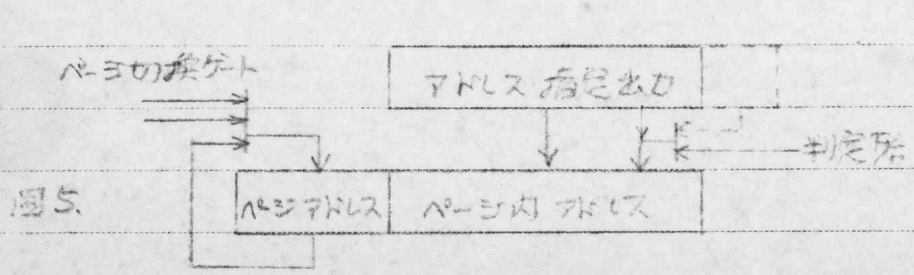 ページ切換ゲート
アドレス指定出力
判定
図5.
ページアドレス
ページ内アドレス